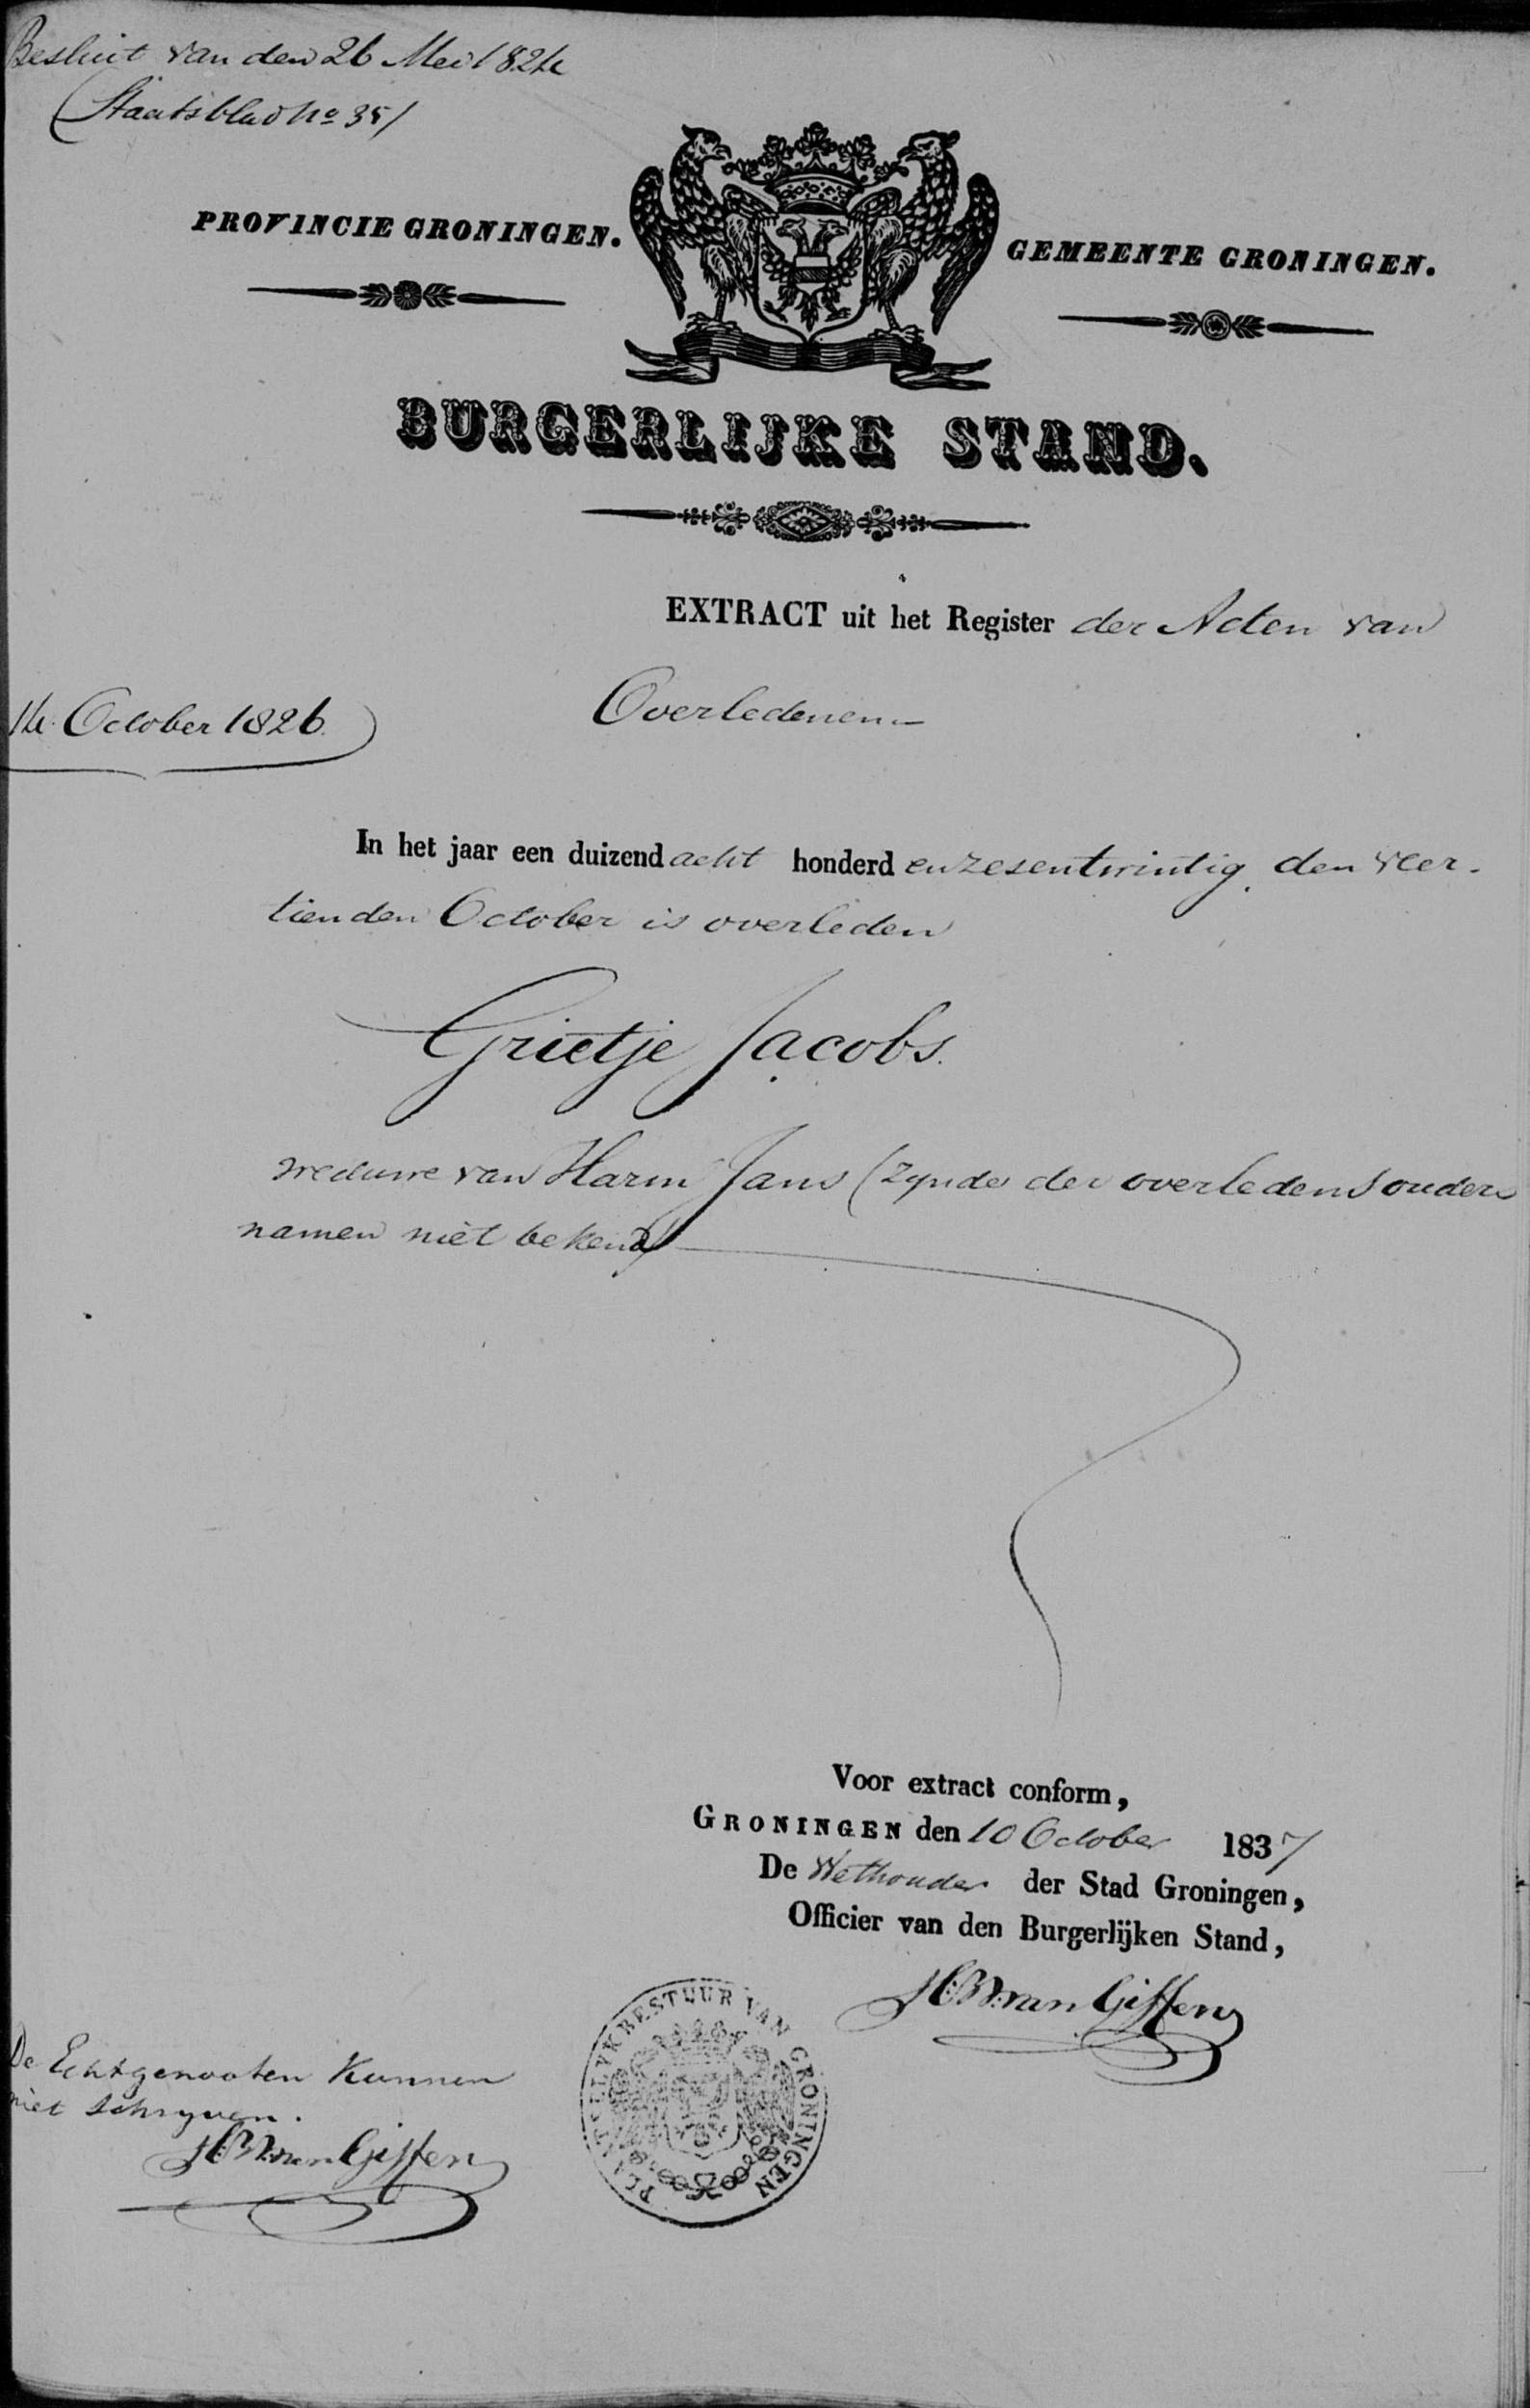 Besluit van den 26 Mei 1824
(Staatsblad No 35)
PROVINCIE GRONINGEN.
GEMEENTE GRONINGEN.
BURGERLIJKE STAND.
EXTRACT uit het Register der Acten van
Overledenen
14 October 1826.
In het jaar een duizend acht honderd en zesentwintig den veer-
tienden October is overleden
Grietje Jacobs.
weduwe van Harm Jans (zynde der overledens ouders
namen niet bekend)
Voor extract conform,
GRONINGEN den 10 October 1837
De Wethouder der Stad Groningen,
Officier van den Burgerlijken Stand,
H:B:van Giffen
PLAATSELYK BESTUUR VAN GRONINGEN
De Echtgenooten kunnen
niet schryven.
H:B:van Giffen